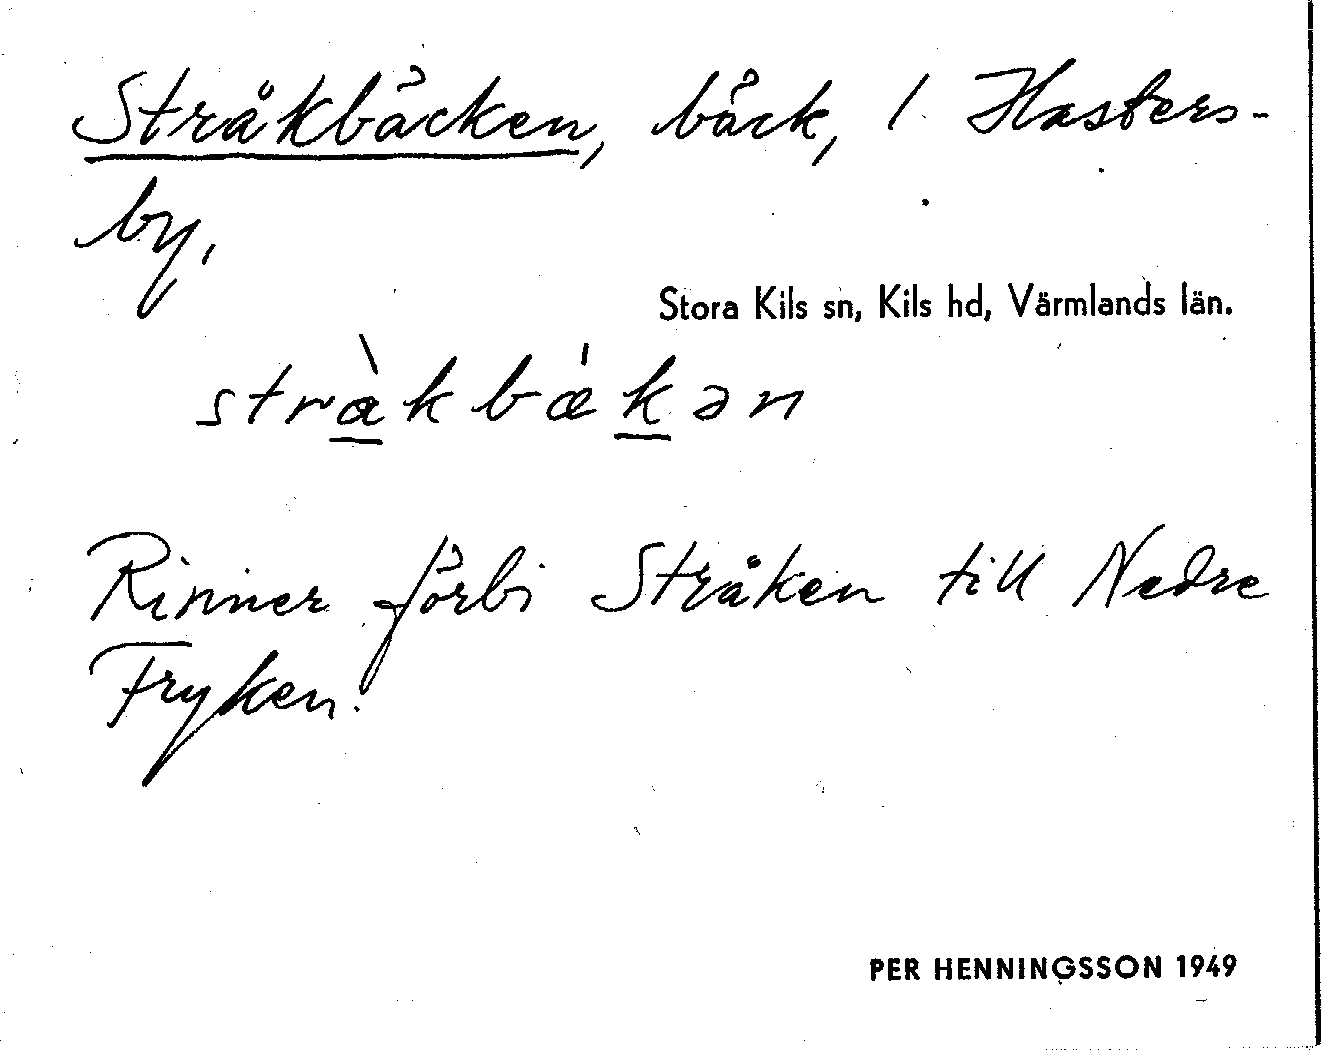 Stråkbäcken, bäck, 1 Hasters-
by,
Stora Kils sn, Kils hd, Värmlands län.
stràkbækən
Rinner förbi Stråken till Nedre
Fryken.
PER HENNINGSSON 1949